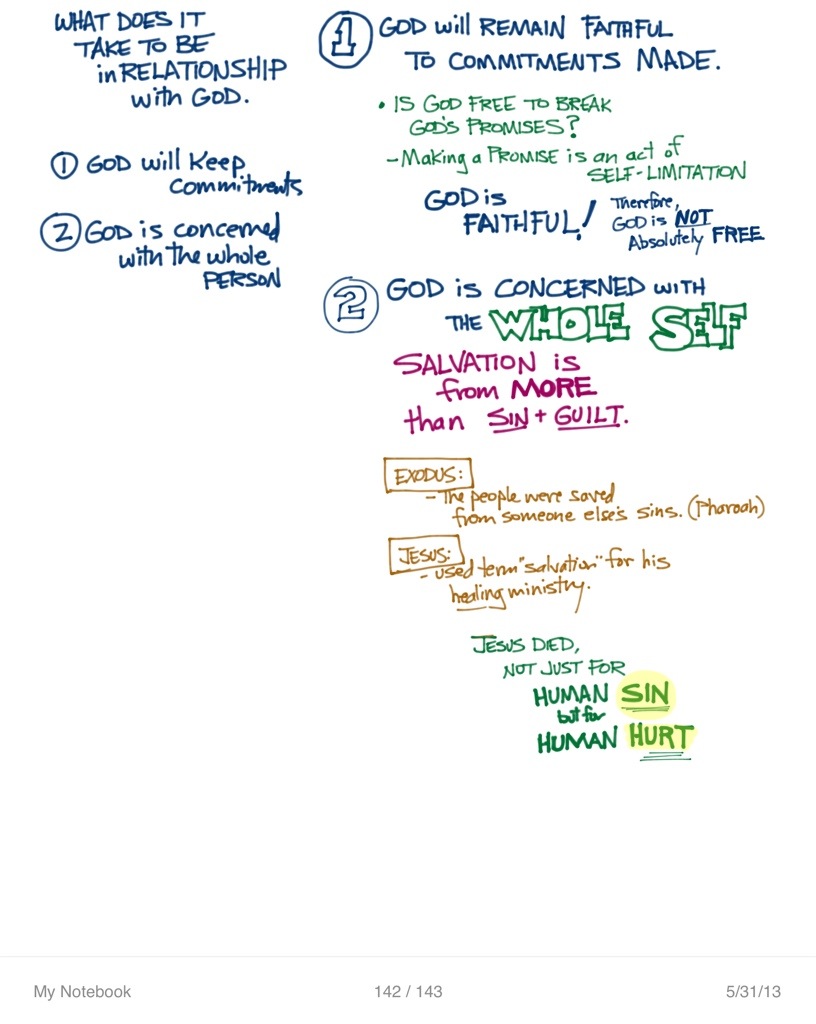 WHAT DOES IT
TAKE TO BE
in RELATIONSHIP
with GOD.
① GOD will Keep
Commitments
② GOD is concerned
with the whole
PERSON
① GOD will REMAIN FAITHFUL
TO COMMITMENTS MADE.
• IS GOD FREE TO BREAK
GOD'S PROMISES?
- Making a PROMISE is an act of
SELF-LIMITATION
GOD is
FAITHFUL!
Therefore,
GOD is NOT
Absolutely FREE
② GOD is CONCERNED WITH
THE WHOLE SELF
SALVATION is
from MORE
than SIN + GUILT.
EXODUS:
- The people were saved
from someone else's sins. (Pharoah)
JESUS:
- used term "salvation" for his
healing ministry.
JESUS DIED,
NOT JUST FOR
HUMAN SIN
but for
HUMAN HURT
My Notebook
142 / 143
5/31/13